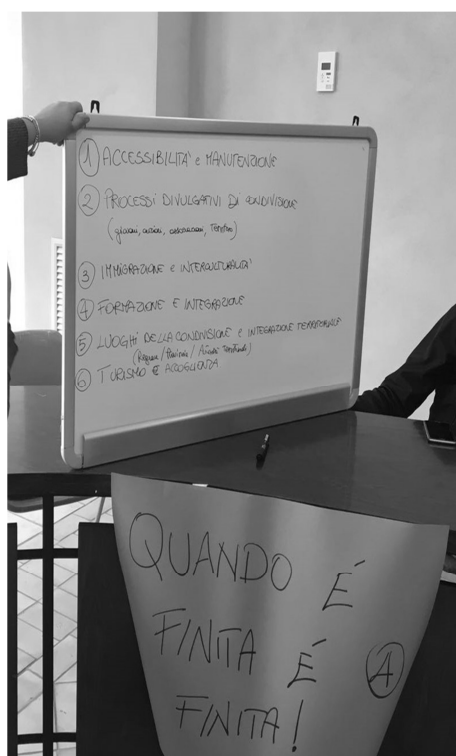 1 ACCESSIBILITÀ e MANUTENZIONE
2 PROCESSI DIVULGATIVI DI CONDIVISIONE
(giovani, anziani, associazioni,
3 IMMIGRAZIONE e INTERCULTURALITÀ
4 FORMAZIONE E INTEGRAZIONE
5 LUOGHI DELLA CONDIVISIONE e INTEGRAZIONE TERRITORIALE
6 TURISMO E ACCOGLIENZA
QUANDO É
FINITA É
FINITA!
4